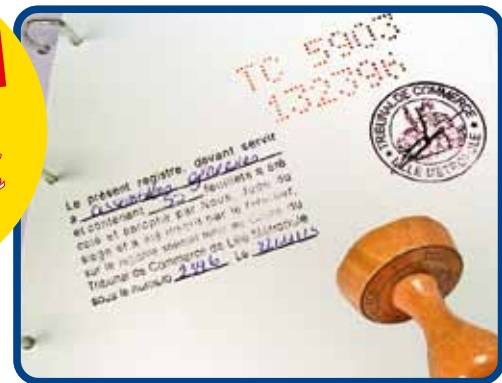 TC 5903
132396
TRIBUNAL DE COMMERCE
Le présent registre, devant servir
à assemblées générales
et contenant 50 feuillets a été
coté et paraphé par Nous, Juge du
siège et a été inscrit par le Greffier,
sur le registre spécial tenu au Greffe du
Tribunal de Commerce de Lille Métropole
sous le numéro 2446 Le